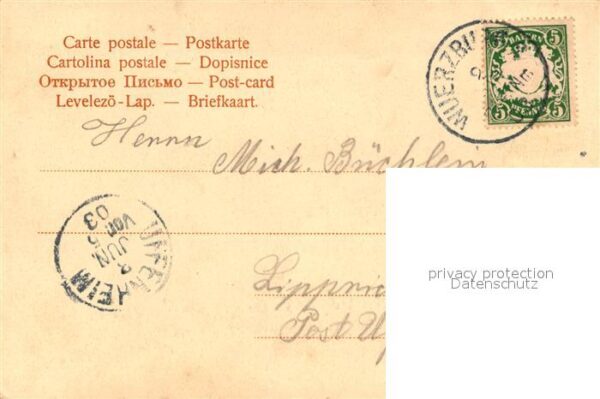 Carte postale — Postkarte
Cartolina postale — Dopisnice
Открытое Письмо — Post-card
Levelezō-Lap. — Briefkaart.
WUERZBU
BAYERN
5 5
5 5
Herrn
Mich. Büchlein
UFFENHEIM
8 JUN
VOR 5
03
Lippric
Post U
privacy protection
Datenschutz